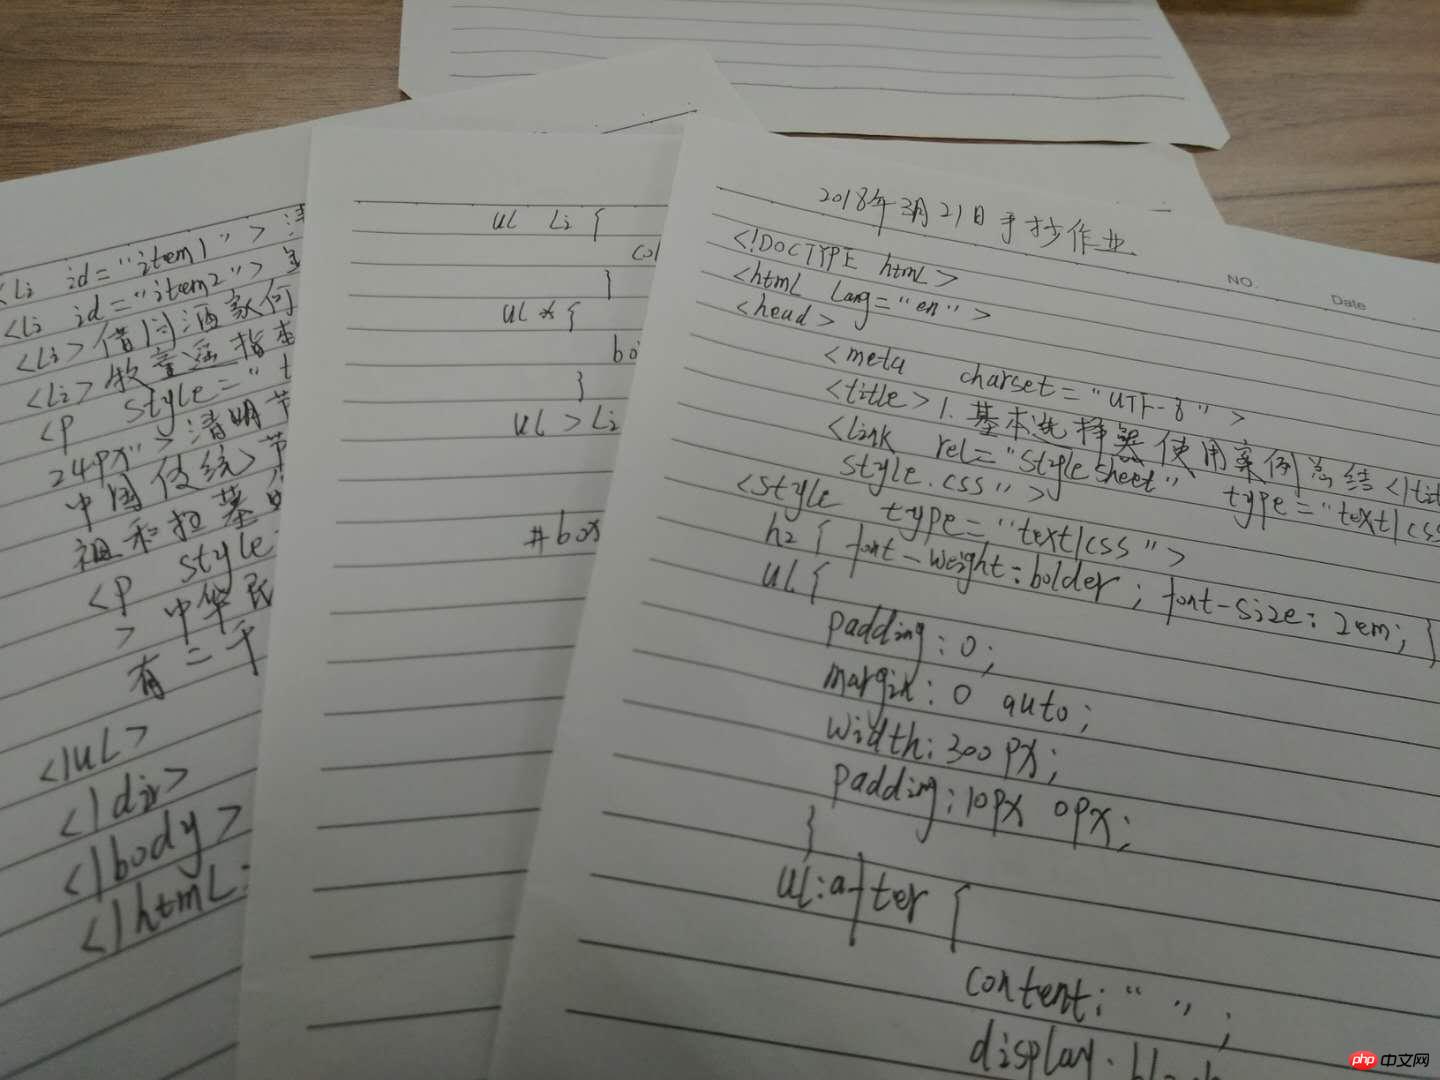 <Li id="item1"> 清
<Li id="item2">
<Li>借问酒家何
<Li>牧童遥指
<p style="t
24px">清明节
中国传统节
祖和扫墓
<p style
>中华民
有二千
</uL>
</div>
</body>
</htmL
uL Li {
col
}
uL *{
bo
}
uL>Li
#box
2018年3月21日手抄作业
NO.
Date
<!DOCTYPE htmL>
<htmL Lang="en">
<head>
<meta charset="UTF-8">
<title>1.基本选择器使用案例总结</tit
<Link rel="stylesheet" type="text/css
style.css">
<style type="text/css">
h2 { font-weight:bolder; font-size:2em; }
uL{
padding:0;
margin:0 auto;
width:300px;
padding:10px 0px;
}
uL:after {
content:" ";
display:block
php 中文网